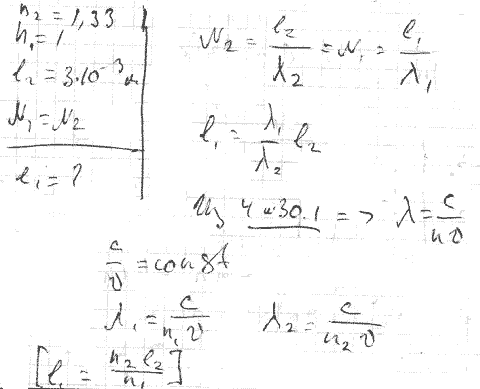 n₂ = 1,33
n₁ = 1
l₂ = 3·10⁻³ м
N₁ = N₂
l₁ = ?
N₂ = l₂/λ₂ = N₁ = l₁/λ₁
l₁ = λ₁/λ₂ l₂
Из 4 и 30.1 => λ = c/nν
c/ν = const
λ₁ = c/n₁ν λ₂ = c/n₂ν
[l₁ = n₂l₂/n₁]